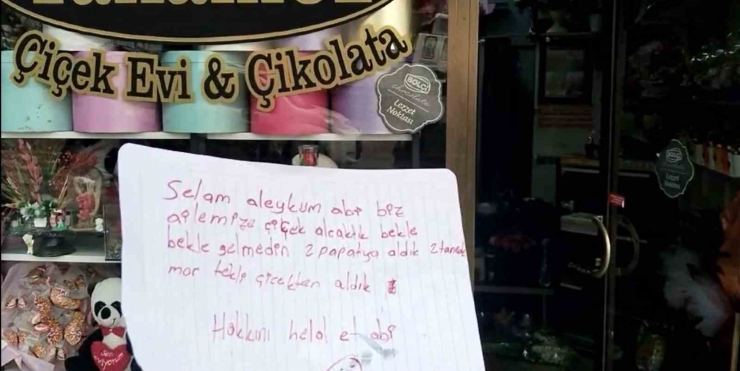 Çiçek Evi & Çikolata
BOLÇİ
chocolate
Lezzet
Noktası
Selam aleykum abi biz
ailemize çiçek alcaktık bekle
bekle gelmedin 2 papatya aldık 2 tane
mor tekli çicekten aldık
Hakkını helal et abi